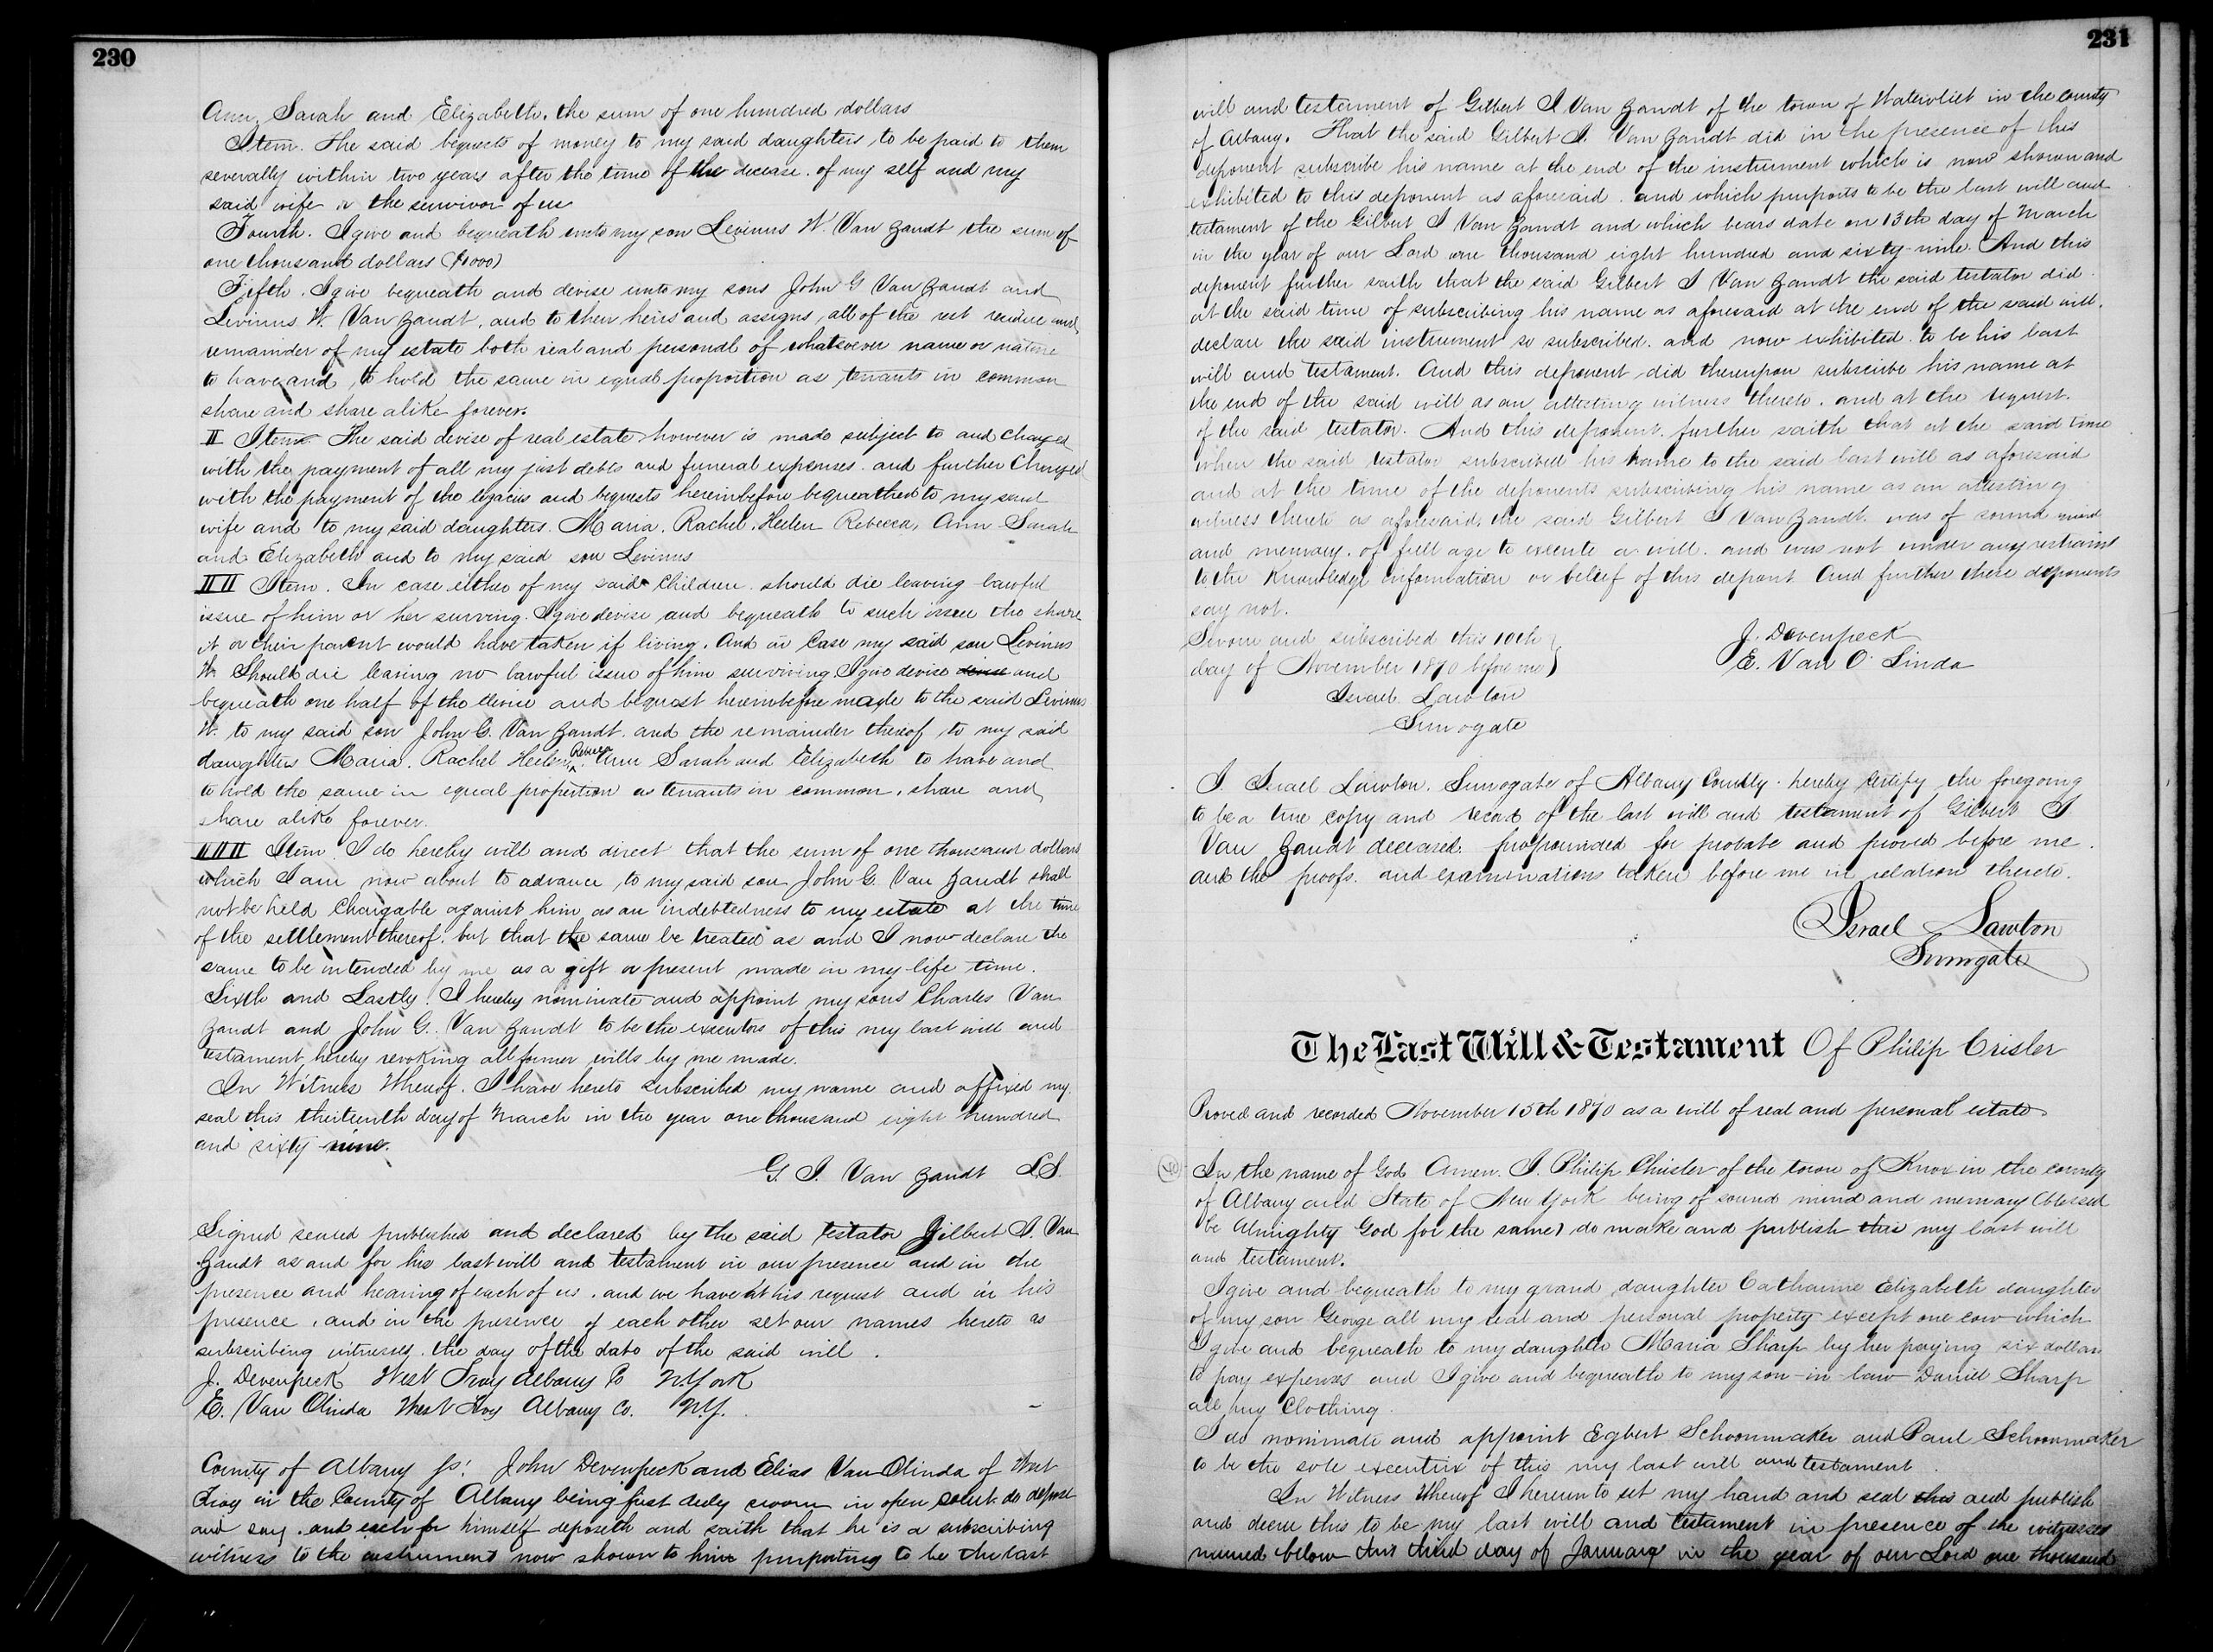 230
Ann, Sarah and Elizabeth, the sum of one hundred dollars
Item. The said bequests of money to my said daughters, to be paid to them
severally within two years after the time of the decease of my self and my
said wife or the survivor of us
Fourth. I give and bequeath unto my son Levinus W. Van Zandt the sum of
one thousand dollars ($1000)
Fifth. I give bequeath and devise unto my sons John G Van Zandt and
Levinus W. Van Zandt, and to their heirs and assigns, all of the rest residue and
remainder of my estate both real and personal of whatsoever name or nature
to have and to hold the same in equal proportion as tenants in common
share and share alike forever.
II Item The said devise of real estate however is made subject to and charged
with the payment of all my just debts and funeral expenses. and further charged
with the payment of the legacies and bequests hereinbefore bequeathed to my said
wife and to my said daughters. Maria. Rachel. Heelen Rebecca, Ann Sarah
and Elizabeth and to my said son Levinus
III Item. In case either of my said children should die leaving lawful
issue of him or her surving. I give devise and bequeath to such issue the share
it or their parent would have taken if living. And in case my said son Levinus
W. Should die leaving no lawful issue of him surviving I give devise devise and
bequeath one half of the devise and bequest hereinbefore made to the said Levinus
W. to my said son John G. Van Zandt. and the remainder thereof to my said
daughters Maria. Rachel Heelen Rebecca Ann Sarah and Elizabeth to have and
to hold the same in equal proportion as tenants in common, share and
share alike forever.
IIII Item I do hereby will and direct that the sum of one thousand dollars
which I am now about to advance to my said son John G. Van Zandt shall
not be held Chargable against him as an indebtedness to my estate at the time
of the settlement thereof. but that the same be treated as and I now declare the
same to be intended by me as a gift or present made in my life time.
Sixth and Lastly. I hereby nominate and appoint my sons Charles Van
Zandt and John G. Van Zandt to be the executors of this my last will and
testament, hereby revoking all former wills by me made.
In Witness Whereof. I have hereto subscribed my name and affixed my
seal this thirteenth day of March in the year one thousand eight hundred
and sixty nine.
G. I. Van Zandt L.S.
Signed sealed published and declared by the said testator Gilbert I. Van
Zandt as and for his last will and testament in our presence and in the
presence and hearing of each of us. and we have at his request and in his
presence, and in the presence of each other set our names hereto as
subscribing witnesses. the day of the date of the said will.
J. Devenpeck West Troy Albany Co N. York
E. Van Olinda West Troy Albany Co. N.Y.
County of Albany ss: John Devenpeck and Elias Van Olinda of West
Troy in the County of Albany being first duly sworn in open court do depose
and say. and each for himself deposeth and saith that he is a subscribing
witness to the instrument now shown to him purporting to be the last
231
will and testament of Gilbert I Van Zandt of the town of Watervliet in the county
of Albany. That the said Gilbert I. Van Zandt did in the presence of this
deponent subscribe his name at the end of the instrument which is now shown and
exhibited to this deponent as aforesaid. and which purports to be the last will and
testament of the Gilbert I Van Zandt and which bears date on 13th day of March
in the year of our Lord one thousand eight hundred and sixty-nine. And this
deponent further saith that the said Gilbert I Van Zandt the said testator did
at the said time of subscribing his name as aforesaid at the end of the said will.
declare the said instrument so subscribed. and now exhibited to be his last
will and testament. And this deponent did thereupon subscribe his name at
the end of the said will as an attesting witness thereto. and at the request.
of the said testator. And this deponent further saith that at the said time
when the said testator subscribed his name to the said last will as aforesaid
and at the time of the deponents subscribing his name as an attesting
witness thereto as aforesaid, the said Gilbert I Van Zandt. was of sound mind
and memory. of full age to execute a will. and was not under any restraint
to the knowledge information or belief of this depont And further these deponents
say not.
Sworn and subscribed this 10th
day of November 1870 before me
Israel Lawton
Surrogate
J. Devenpeck
E. Van O. Linda
I. Israel Lawton. Surrogate of Albany County. hereby certify the foregoing
to be a true copy and record of the last will and testament of Gilbert I
Van Zandt deceased. propounded for probate and proved before me.
and the proofs. and examinations taken before me in relation thereto.
Israel Lawton
Surrogate
The Last Will & Testament Of Philip Crisler
Proved and recorded November 15th 1870 as a will of real and personal estate
In the name of God Amen. I. Philip Chrisler of the town of Knox in the county
of Albany and State of New York being of sound mind and memory (blessed
be Almighty God for the same) do make and publish this my last will
and testament.
I give and bequeath to my grand daughter Catharine Elizabeth daughter
of my son George all my real and personal property except one cow which
I give and bequeath to my daughter Maria Sharp by her paying six dollars
to pay expenses and I give and bequeath to my son-in-law Daniel Sharp
all my Clothing.
I do nominate and appoint Egbert Schoonmaker and Paul Schoonmaker
to be the sole executrix of this my last will and testament.
In Witness Whereof I hereunto set my hand and seal this and publish
and decree this to be my last will and testament in presence of the witnesses
named below this third day of January in the year of our Lord one thousand